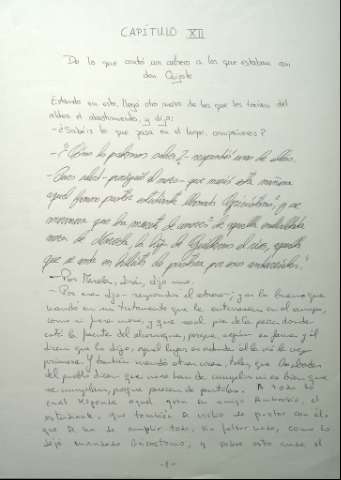 CAPÍTULO XII
De lo que contó un cabrero a los que estaban con
don Quijote
Estando en esto, llegó otro mozo de los que les traían del
aldea el bastimento, y dijo:
- ¿Sabéis lo que pasa en el lugar, compañeros?
- ¿Cómo lo podemos saber? - respondió uno de ellos.
- Pues sabed - prosiguió el mozo - que murió esta mañana
aquel famoso pastor estudiante llamado Grisóstomo, y se
murmura que ha muerto de amores de aquella endiablada
moza de Marcela, la hija de Guillermo el rico, aquella
que se anda en hábito de pastora por esos andurriales.
- Por Marcela, dirás, dijo uno.
- Por esa digo - respondió el cabrero -; y es lo bueno que
mandó en su testamento que le enterrasen en el campo,
como si fuera moro, y que sea al pie de la peña donde
está la fuente del alcornoque, porque, según es fama y él
dicen que lo dijo, aquel lugar es adonde él la vio la vez
primera. Y también mandó otras cosas, tales, que los abades
del pueblo dicen que no se han de cumplir ni es bien que
se cumplan, porque parecen de gentiles. A todo lo
cual responde aquel gran su amigo Ambrosio, el
estudiante, que también se vistió de pastor con él,
que se ha de cumplir todo, sin faltar nada, como lo
dejó mandado Grisóstomo, y sobre esto anda el